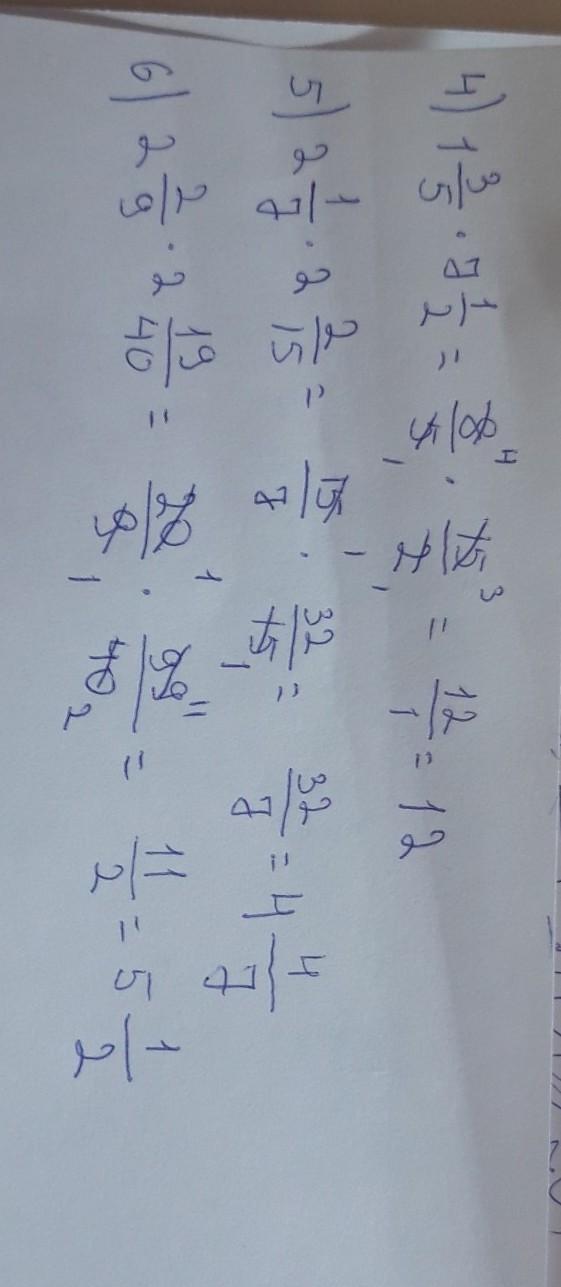 4) 1 3/5 · 7 1/2 = 8⁴/5₁ · 15³/2₁ = 12/1 = 12
5) 2 1/7 · 2 2/15 = 15¹/7 · 32/15₁ = 32/7 = 4 4/7
6) 2 2/9 · 2 19/40 = 20¹/9₁ · 99¹¹/40₂ = 11/2 = 5 1/2